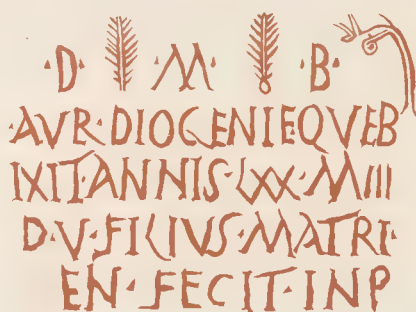 ·D· M· B·
·AVR·DIOGENIEQVEB
IXIT·ANNIS·LXX·MIII
D·V·FILIVS·MATRI·
EN·FECIT·INP